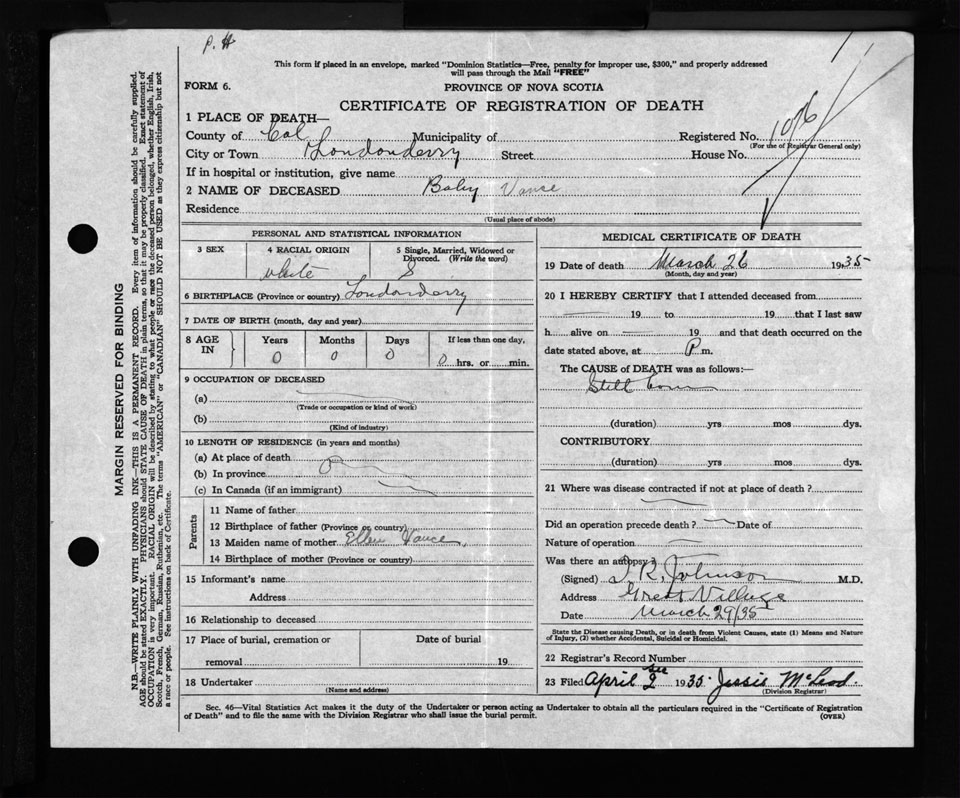 P. H
This form if placed in an envelope, marked "Dominion Statistics—Free, penalty for improper use, $300," and properly addressed
will pass through the Mail "FREE"
FORM 6.
PROVINCE OF NOVA SCOTIA
CERTIFICATE OF REGISTRATION OF DEATH
1 PLACE OF DEATH—
County of Col Municipality of Registered No. 1076
(For use of Registrar General only)
City or Town Londonderry Street House No.
If in hospital or institution, give name
2 NAME OF DECEASED Baby Vance
Residence
(Usual place of abode)
PERSONAL AND STATISTICAL INFORMATION
3 SEX 4 RACIAL ORIGIN 5 Single, Married, Widowed or
Divorced. (Write the word)
white S
6 BIRTHPLACE (Province or country) Londonderry
7 DATE OF BIRTH (month, day and year)
8 AGE IN Years Months Days If less than one day,
0 0 0 0 hrs. or min.
9 OCCUPATION OF DECEASED
(a)
(Trade or occupation or kind of work)
(b)
(Kind of industry)
10 LENGTH OF RESIDENCE (in years and months)
(a) At place of death
(b) In province
(c) In Canada (if an immigrant)
Parents
11 Name of father
12 Birthplace of father (Province or country)
13 Maiden name of mother Ellen Vance
14 Birthplace of mother (Province or country)
15 Informant's name
Address
16 Relationship to deceased
17 Place of burial, cremation or Date of burial
removal 19
18 Undertaker
(Name and address)
MEDICAL CERTIFICATE OF DEATH
19 Date of death March 26 1935
(Month, day and year)
20 I HEREBY CERTIFY that I attended deceased from
19 to 19 that I last saw
h alive on 19 and that death occurred on the
date stated above, at P m.
The CAUSE of DEATH was as follows:—
Still born
(duration) yrs mos dys.
CONTRIBUTORY
(duration) yrs mos dys.
21 Where was disease contracted if not at place of death ?
Did an operation precede death ? Date of
Nature of operation
Was there an autopsy ?
(Signed) T. R. Johnson M.D.
Address Great Village
Date March 29/35
State the Disease causing Death, or in death from Violent Causes, state (1) Means and Nature
of Injury, (2) whether Accidental, Suicidal or Homicidal.
22 Registrar's Record Number
23 Filed April 2 1935 Jessie McLeod.
(Division Registrar)
Sec. 46—Vital Statistics Act makes it the duty of the Undertaker or person acting as Undertaker to obtain all the particulars required in the "Certificate of Registration
of Death" and to file the same with the Division Registrar who shall issue the burial permit.
(OVER)
MARGIN RESERVED FOR BINDING
N.B.—WRITE PLAINLY WITH UNFADING INK—THIS IS A PERMANENT RECORD. Every item of information should be carefully supplied.
AGE should be stated EXACTLY. PHYSICIANS should STATE CAUSE OF DEATH in plain terms, so that it may be properly classified. Exact statement of
OCCUPATION is very important. RACIAL ORIGIN will be described by stating to what people or race the deceased person belonged, whether English, Irish,
Scotch, French, German, Russian, Ruthenian, etc. The terms "AMERICAN" or "CANADIAN" SHOULD NOT BE USED as they express citizenship but not
a race or people. See instructions on back of Certificate.